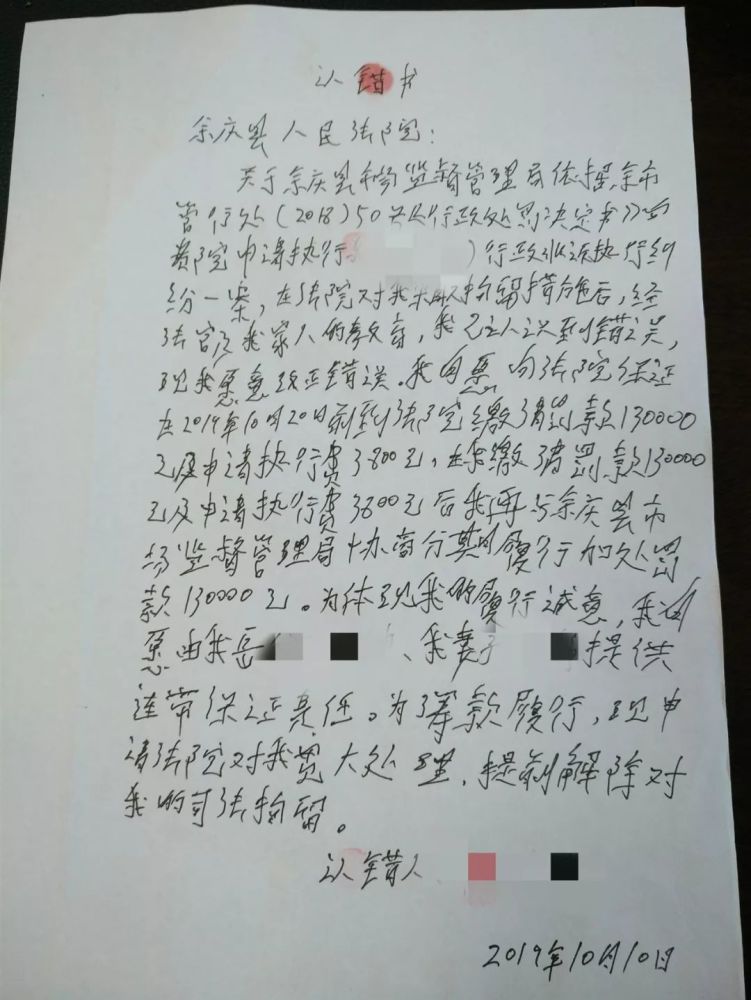 认错书
余庆县人民法院:
关于余庆县市场监督管理局依据余市
管行处(2018)50号《行政处罚决定书》向
贵院申请执行 )行政非诉执行纠
纷一案,在法院对我采取拘留措施后,经
法官及我家人的教育,我已经认识到错误,
现我愿意改正错误。我自愿向法院保证
在2019年10月20日前到法院缴清罚款130000
元及申请执行费3800元,在我缴清罚款130000
元及申请执行费3800元后我再与余庆县市
场监督管理局协商分期履行加处罚
款130000元。为体现我的履行诚意,我自
愿由我岳 、我妻子 提供
连带保证责任。为筹款履行,现申
请法院对我宽大处理,提前解除对
我的司法拘留。
认错人
2019年10月10日